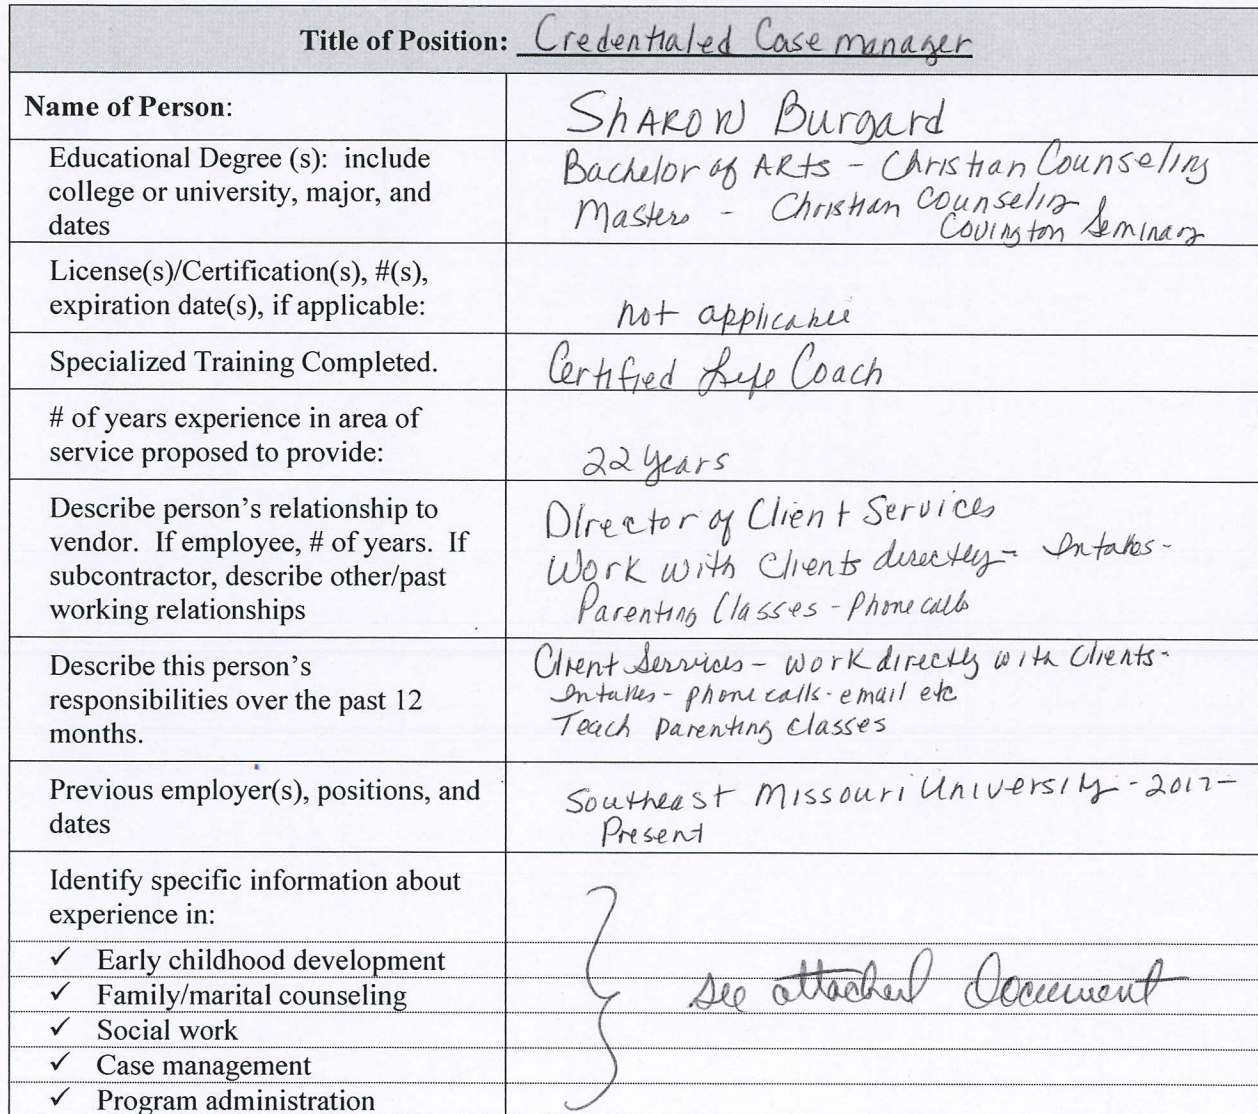 Title of Position: Credentialed Case manager
Name of Person:
Sharon Burgard
Educational Degree (s): include
college or university, major, and
dates
Bachelor of Arts - Christian Counseling
Masters - Christian Counseling
Covington Seminary
License(s)/Certification(s), #(s),
expiration date(s), if applicable:
not applicable
Specialized Training Completed.
Certified Life Coach
# of years experience in area of
service proposed to provide:
22 years
Describe person's relationship to
vendor. If employee, # of years. If
subcontractor, describe other/past
working relationships
Director of Client Services
Work with Clients directly - Intakes -
Parenting Classes - Phone calls
Describe this person's
responsibilities over the past 12
months.
Client Services - work directly with Clients -
Intakes - phone calls - email etc
Teach parenting classes
Previous employer(s), positions, and
dates
Southeast Missouri University - 2017 -
Present
Identify specific information about
experience in:
✓ Early childhood development
✓ Family/marital counseling
✓ Social work
✓ Case management
✓ Program administration
See attached Document